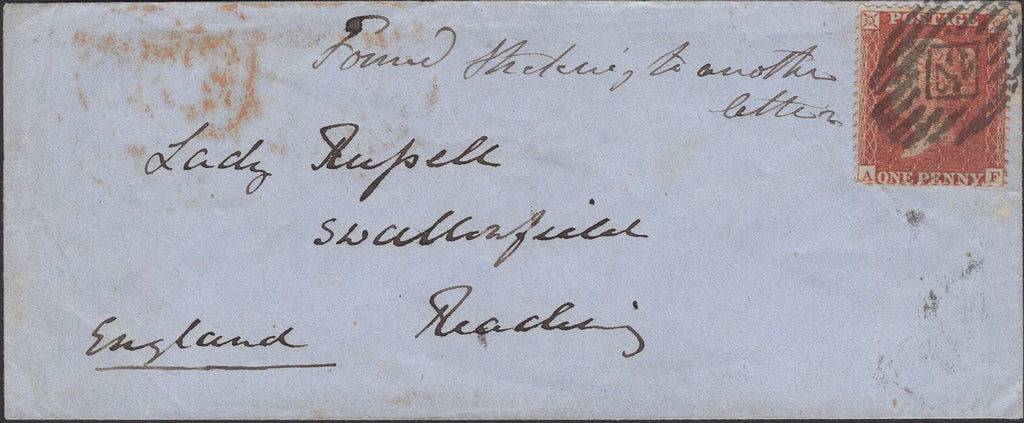 Found Sticking to another
letter
POSTAGE
A ONE PENNY F
Lady Russell
Swallowfield
Reading
England